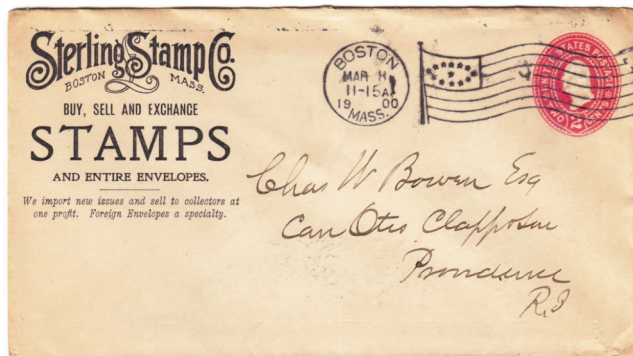 Sterling Stamp Co.
BOSTON MASS.
BUY, SELL AND EXCHANGE
STAMPS
AND ENTIRE ENVELOPES.
We import new issues and sell to collectors at
one profit. Foreign Envelopes a specialty.
BOSTON
MAR
11-15A
1900
MASS.
UNITED STATES POSTAGE
TWO CENTS
2
Chas W Bowen Esq
Care Otis Clapp & Son
Providence
R.I